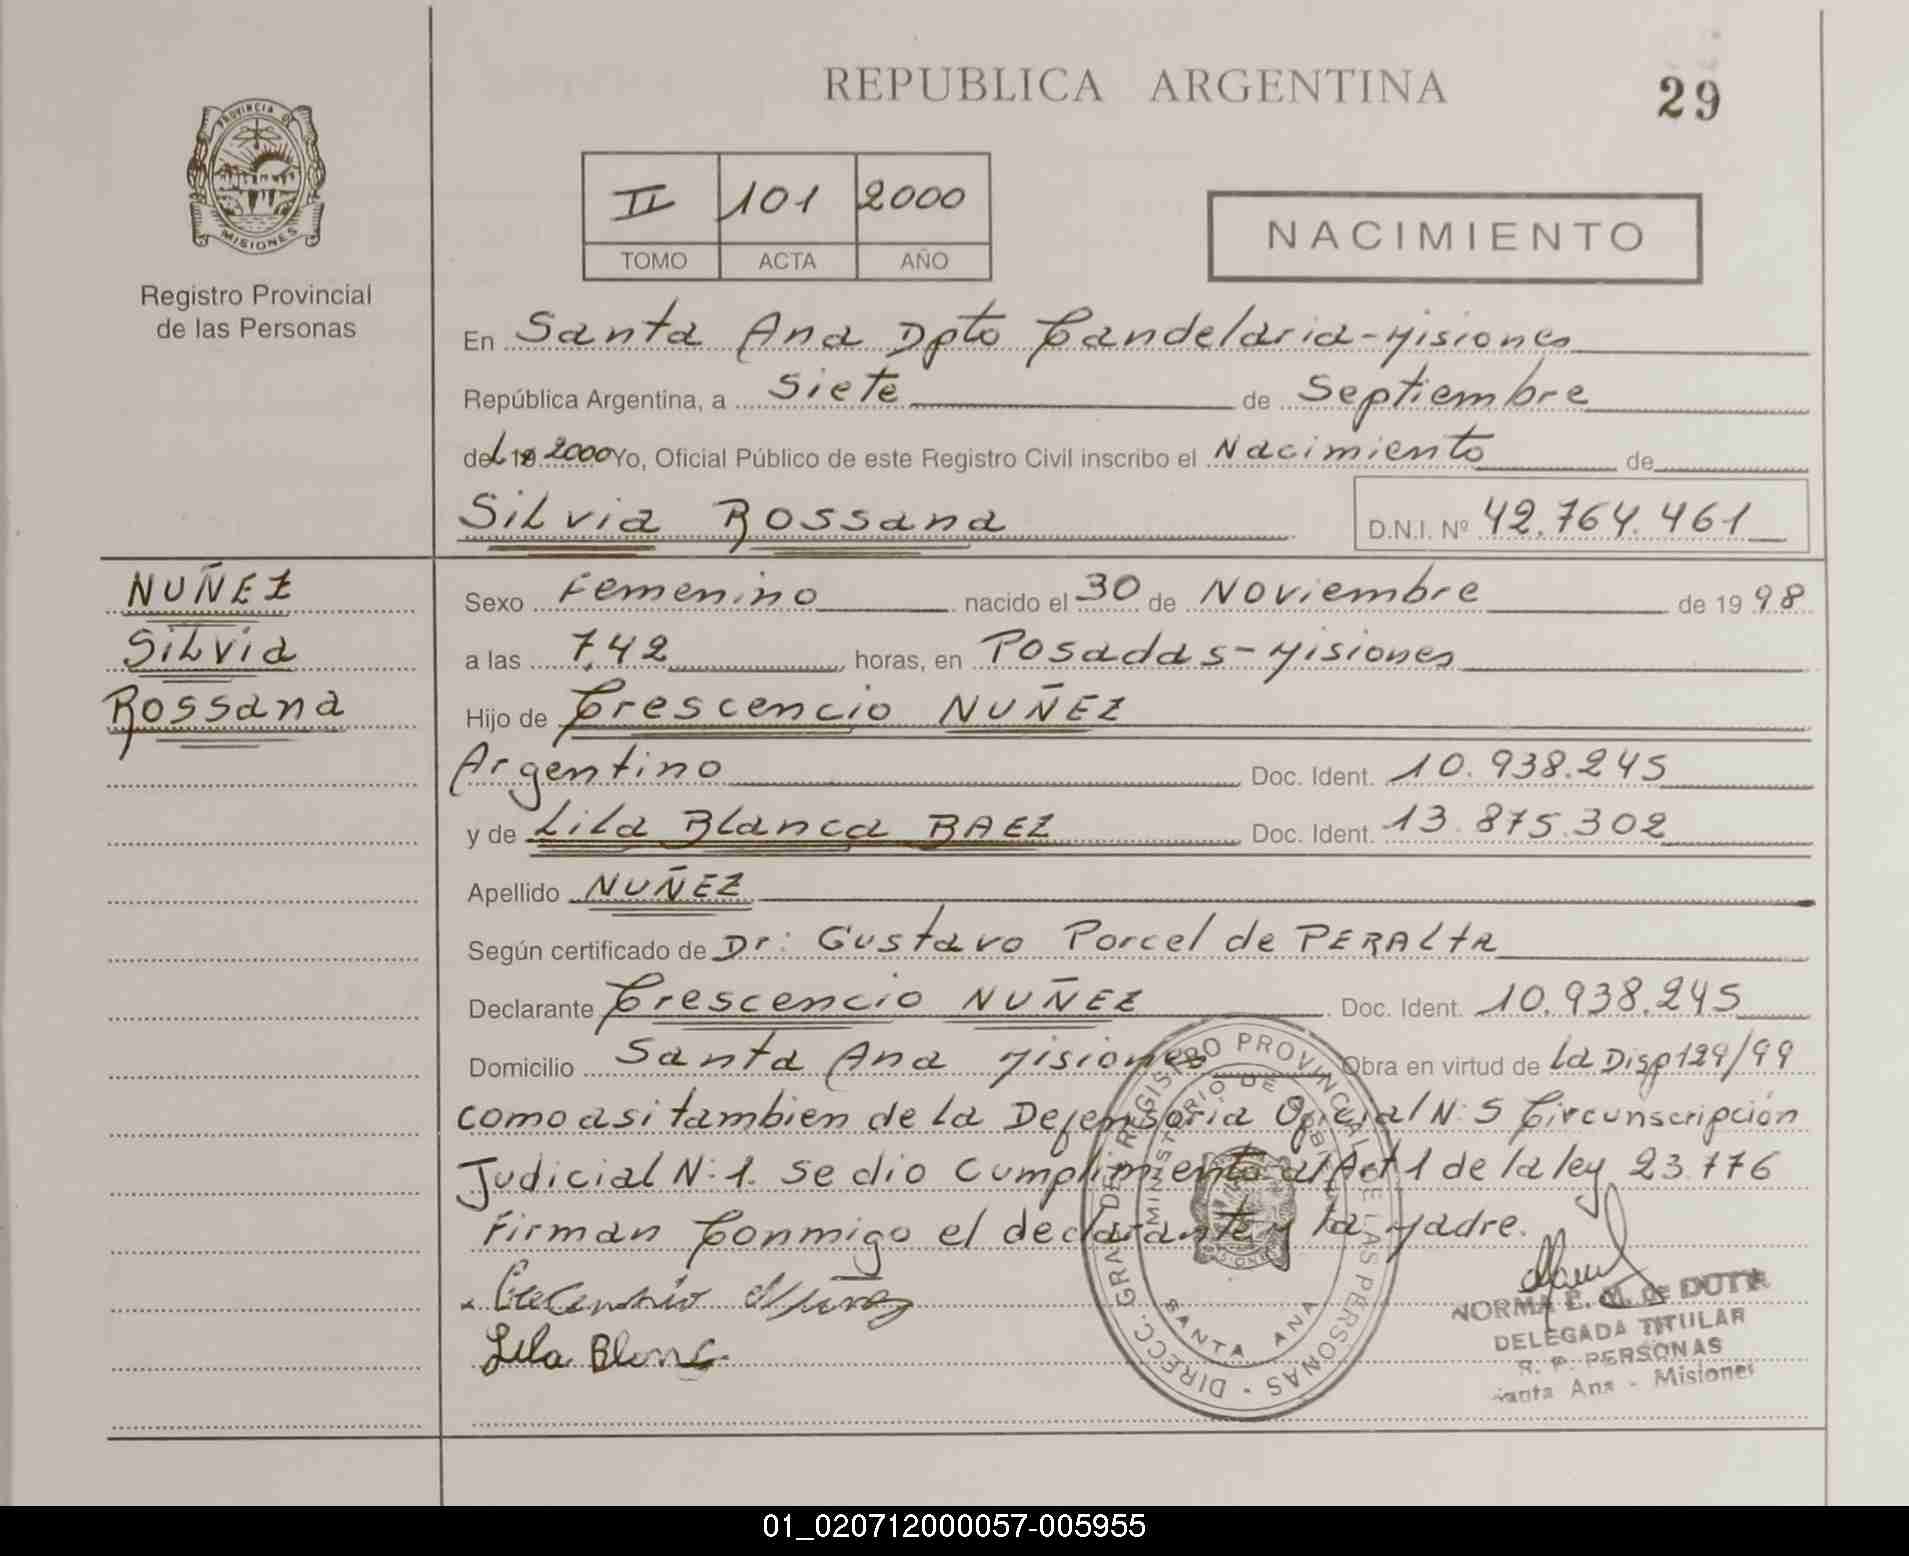 REPUBLICA ARGENTINA
29
PROVINCIA DE
MISIONES
Registro Provincial
de las Personas
II 101 2000
TOMO ACTA AÑO
NACIMIENTO
En Santa Ana Dpto Candelaria-Misiones
República Argentina, a Siete de Septiembre
deL 19 2000 Yo, Oficial Público de este Registro Civil inscribo el Nacimiento de
SiLvia Rossana D.N.I. Nº 42.764.461
NUÑEZ
SiLvia
Rossana
Sexo Femenino nacido el 30 de Noviembre de 19 98
a las 7,42 horas, en Posadas-Misiones
Hijo de Crescencio NUÑEZ
Argentino Doc. Ident. 10.938.245
y de Lila Blanca BAEZ Doc. Ident. 13.875.302
Apellido NUÑEZ
Según certificado de Dr: Gustavo Porcel de PERALTA
Declarante Crescencio NUÑEZ Doc. Ident. 10.938.245
Domicilio Santa Ana Misiones Obra en virtud de la Disp 129/99
como asi tambien de la Defensoria Oficial N:5 Circunscripción
Judicial N:1. Se dio Cumplimiento al Art 1 de la ley 23.776
Firman Conmigo el declarante y la Madre.
Lila Blanc
DIRECC. GRAL. DEL REGISTRO PROVINCIAL DE LAS PERSONAS
MINISTERIO DE GOBIERNO
SANTA ANA
NORMA E. M. de DUTRA
DELEGADA TITULAR
R. P. PERSONAS
Santa Ana - Misiones
01_020712000057-005955